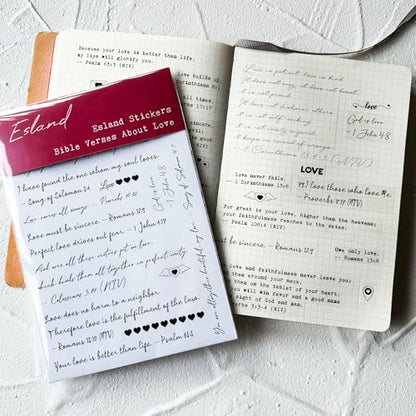 Because your love is better than life,
my lips will glorify you.
-- Psalm 63:3 (NIV)
Esland
Esland Stickers
Bible Verses About Love
I have found the one whom my soul loves.
- Song of Solomon 3:4
Love
Love covers all wrongs - Proverbs 10:12
Love must be sincere. - Romans 12:9
Perfect love drives out fear - 1 John 4:18
And over all these virtues put on love,
which binds them all together in perfect unity.
- Colossians 3:14 (NIV)
Love does no harm to a neighbor.
Therefore love is the fulfillment of the law.
- Romans 13:10 (NIV)
Your love is better than life. - Psalm 63:3
God is love
- 1 John 4:8
You are altogether beautiful, my
- Song of Solomon 4:7
Love builds up.
Corinthians 8:1
all times.
17:17
Love is patient, love is kind.
It does not envy, it does not boast,
it is not proud.
It does not dishonor others,
it is not self-seeking,
it is not easily angered,
it keeps no record of wrongs.
(NIV)
love
God is love
- 1 John 4:8
LOVE
Love never fails.
- 1 Corinthians 13:8
I love those who love me.
- Proverbs 8:17 (NIV)
For great is your love, higher than the heavens;
your faithfulness reaches to the skies.
-- Psalm 108:4 (NIV)
be sincere. - Romans 12:9
Owe only love.
- Romans 13:8
love and faithfulness never leave you;
them around your neck,
them on the tablet of your heart.
you will win favor and a good name
sight of God and man.
verbs 3:3-4 (NIV)